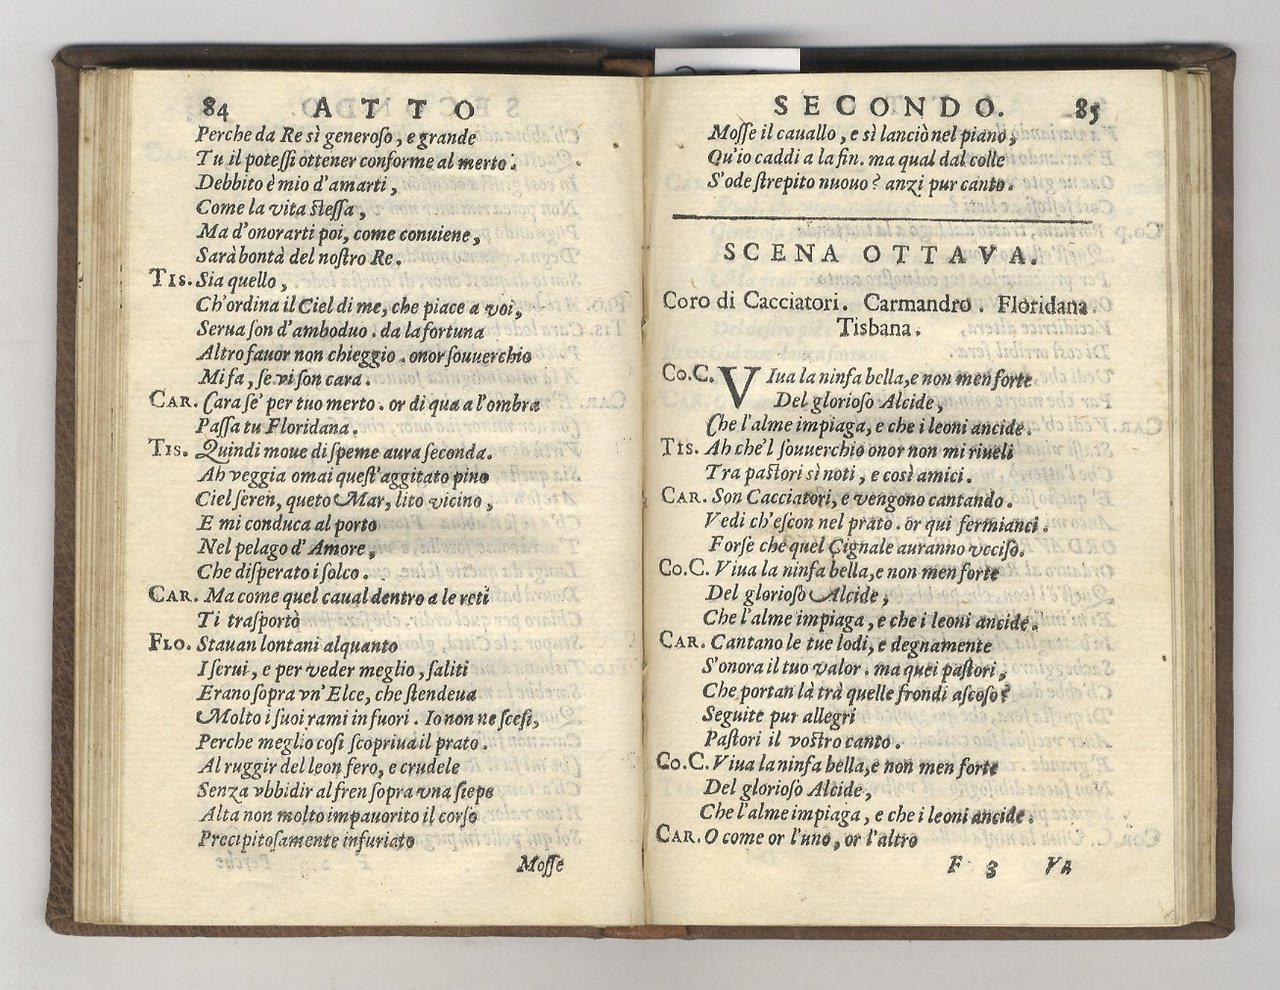 84 ATTO
Perche da Re sì generoso, e grande
Tu il potessi ottener conforme al merto.
Debbito è mio d'amarti,
Come la vita stessa,
Ma d'onorarti poi, come conuiene,
Sarà bontà del nostro Re.
TIS. Sia quello,
Ch'ordina il Ciel di me, che piace a voi,
Serua son d'amboduo. da la fortuna
Altro fauor non chieggio. onor souuerchio
Mi fa, se vi son cara.
CAR. Cara se' per tuo merto. or di qua a l'ombra
Passa tu Floridana.
TIS. Quindi moue di speme aura seconda.
Ah veggia omai quest'aggitato pino
Ciel seren, queto Mar, lito vicino,
E mi conduca al porto
Nel pelago d'Amore,
Che disperato i solco.
CAR. Ma come quel caual dentro a le reti
Ti trasportò
FLO. Stauan lontani alquanto
I serui, e per veder meglio, saliti
Erano sopra vn'Elce, che stendeua
Molto i suoi rami in fuori. Io non ne scesi,
Perche meglio così scopriua il prato.
Al ruggir del leon fero, e crudele
Senza vbbidir al fren sopra vna siepe
Alta non molto impauorito il corso
Precipitosamente infuriato
Mosse
SECONDO. 85
Mosse il cauallo, e sì lanciò nel piano,
Qu'io caddi a la fin. ma qual dal colle
S'ode strepito nuouo? anzi pur canto.
SCENA OTTAVA.
Coro di Cacciatori. Carmandro. Floridana
Tisbana.
CO.C. VIua la ninfa bella, e non men forte
Del glorioso Alcide,
Che l'alme impiaga, e che i leoni ancide.
TIS. Ah che'l souuerchio onor non mi riueli
Tra pastori sì noti, e così amici.
CAR. Son Cacciatori, e vengono cantando.
Vedi ch'escon nel prato. or qui fermianci.
Forse che quel Cignale auranno vcciso.
CO.C. Viua la ninfa bella, e non men forte
Del glorioso Alcide,
Che l'alme impiaga, e che i leoni ancide.
CAR. Cantano le tue lodi, e degnamente
S'onora il tuo valor. ma quei pastori,
Che portan là trà quelle frondi ascoso?
Seguite pur allegri
Pastori il vostro canto.
CO.C. Viua la ninfa bella, e non men forte
Del glorioso Alcide,
Che l'alme impiaga, e che i leoni ancide.
CAR. O come or l'uno, or l'altro
F 3 Va